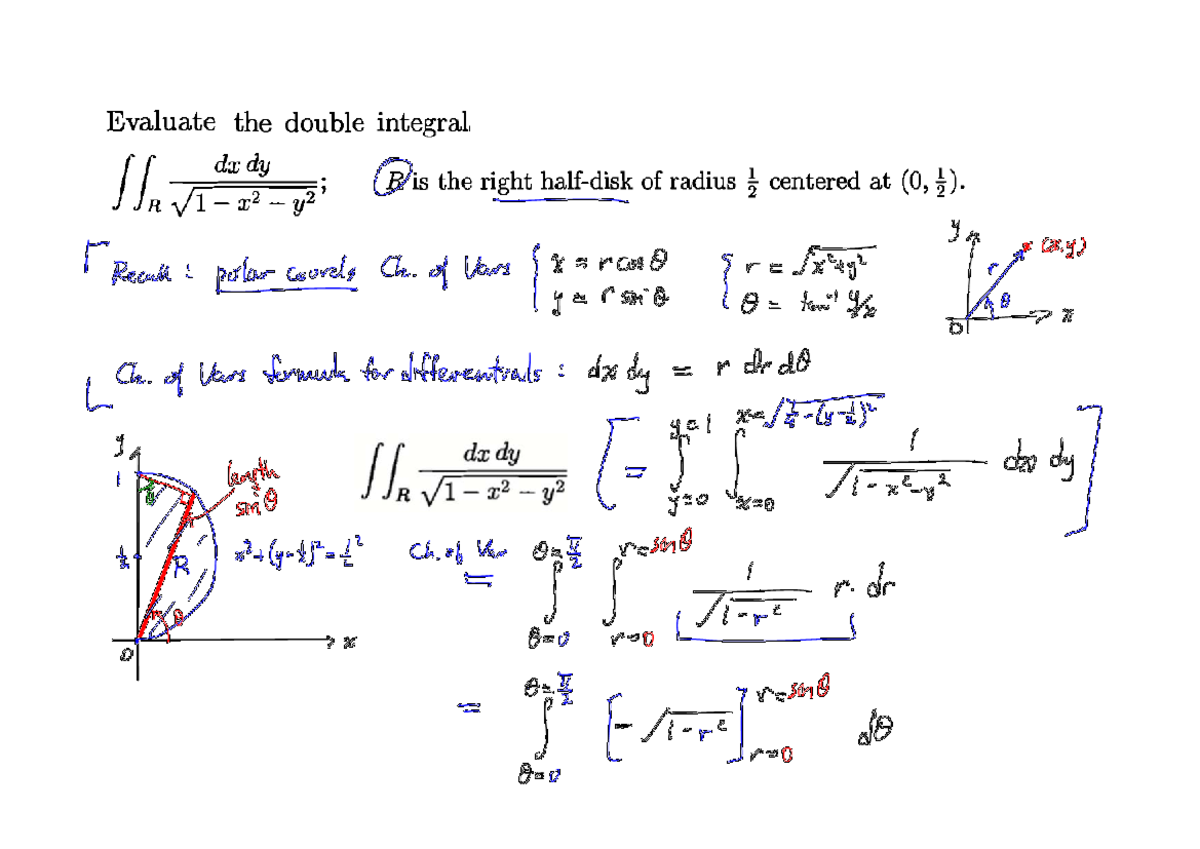 Evaluate the double integral
∬_R dx dy / √(1 − x² − y²); R is the right half-disk of radius 1/2 centered at (0, 1/2).
Recall : polar coords Ch. of Vars { x = r cos θ y = r sin θ { r = √(x²+y²) θ = tan⁻¹ y/x
y (x,y) r θ 0 x
Ch. of Vars formula for differentials : dx dy = r dr dθ
∬_R dx dy / √(1 − x² − y²) [ = ∫_{y=0}^{y=1} ∫_{x=0}^{x=√(1/4-(y-1/2)²)} 1/√(1-x²-y²) dx dy ]
y 1 θ length = sin θ
1/2 R x²+(y-1/2)²=1/2² r θ 0 x
Ch. of Var = ∫_{θ=0}^{θ=π/2} ∫_{r=0}^{r=sin θ} 1/√(1-r²) r· dr
= ∫_{θ=0}^{θ=π/2} [ -√(1-r²) ]_{r=0}^{r=sin θ} dθ